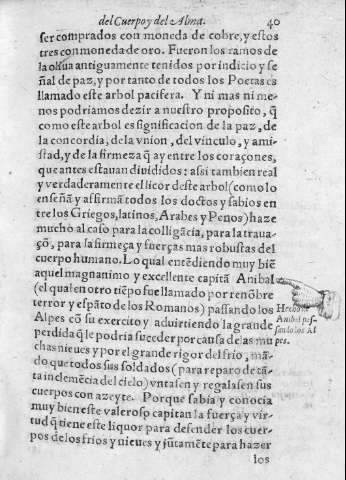 del Cuerpo y del Alma. 40
ser comprados con moneda de cobre, y estos
tres con moneda de oro. Fueron los ramos de
la oliua antiguamente tenidos por indicio y se
ñal de paz, y por tanto de todos los Poetas es
llamado este arbol pacifera. Y ni mas ni me
nos podriamos dezir a nuestro proposito, q̃
como este arbol es significacion de la paz, de
la concordia, de la vnion, del vinculo, y ami
stad, y de la firmeza q̃ ay entre los coraçones,
que antes estauan diuididos: assi tambien real
y verdaderamente el licor deste arbol (como lo
enseñã y affirmã todos los doctos y sabios en
tre los Griegos, latinos, Arabes y Penos) haze
mucho al caso para la colligãcia, para la traua-
çõ, para la firmeça y fuerças mas robustas del
cuerpo humano. Lo qual entẽdiendo muy biẽ
aquel magnanimo y excellente capitã Anibal
(el qual en otro tiẽpo fue llamado por renõbre
terror y espãto de los Romanos) passando los
Alpes cõ su exercito y aduirtiendo la grande
perdida q̃ le podria suceder por causa de las mu
chas nieues y por el grande rigor del frio, mã-
do que todos sus soldados (para reparo de tã-
ta inclemẽcia del cielo) vntassen y regalassen sus
cuerpos con azeyte. Porque sabia y conocia
muy bien este valeroso capitan la fuerça y vir-
tud q̃ tiene este liquor para defender los cuer-
pos de los frios y nieues y jũtamẽte para hazer
los
Anibal pas-
sando los Al
pes.